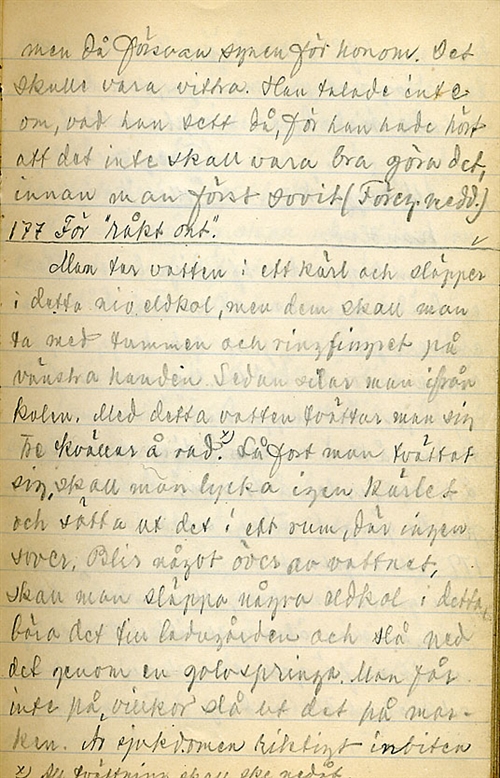 men då försvan synen för honom. Det
skulle vara vittra. Han talade inte
om, vad han sett då, för han hade hört
att det inte skall vara bra göra det,
innan man först sovit (Föreg. nedd.)
177 För "råkt ont".
Man tar vatten i ett kärl och släpper
i detta nio eldkol, men dem skall man
ta med tummen och ringfingret på
vänstra handen. Sedan silar man ifrån
kolen. Med detta vatten tvättar man sig
tre kvällar å rad.x) Så fort man tvättat
sig, skall man lycka igen kärlet
och sätta ut det i ett rum, där ingen
sover. Blir något över av vattnet,
skall man släppa några eldkol i detta,
bära det till ladugården och slå ned
det genom en golvspringa. Man får
inte på villkor slå ut det på mar-
ken. Är sjukdomen riktigt inbiten
x) tvättning skall ske nedåt